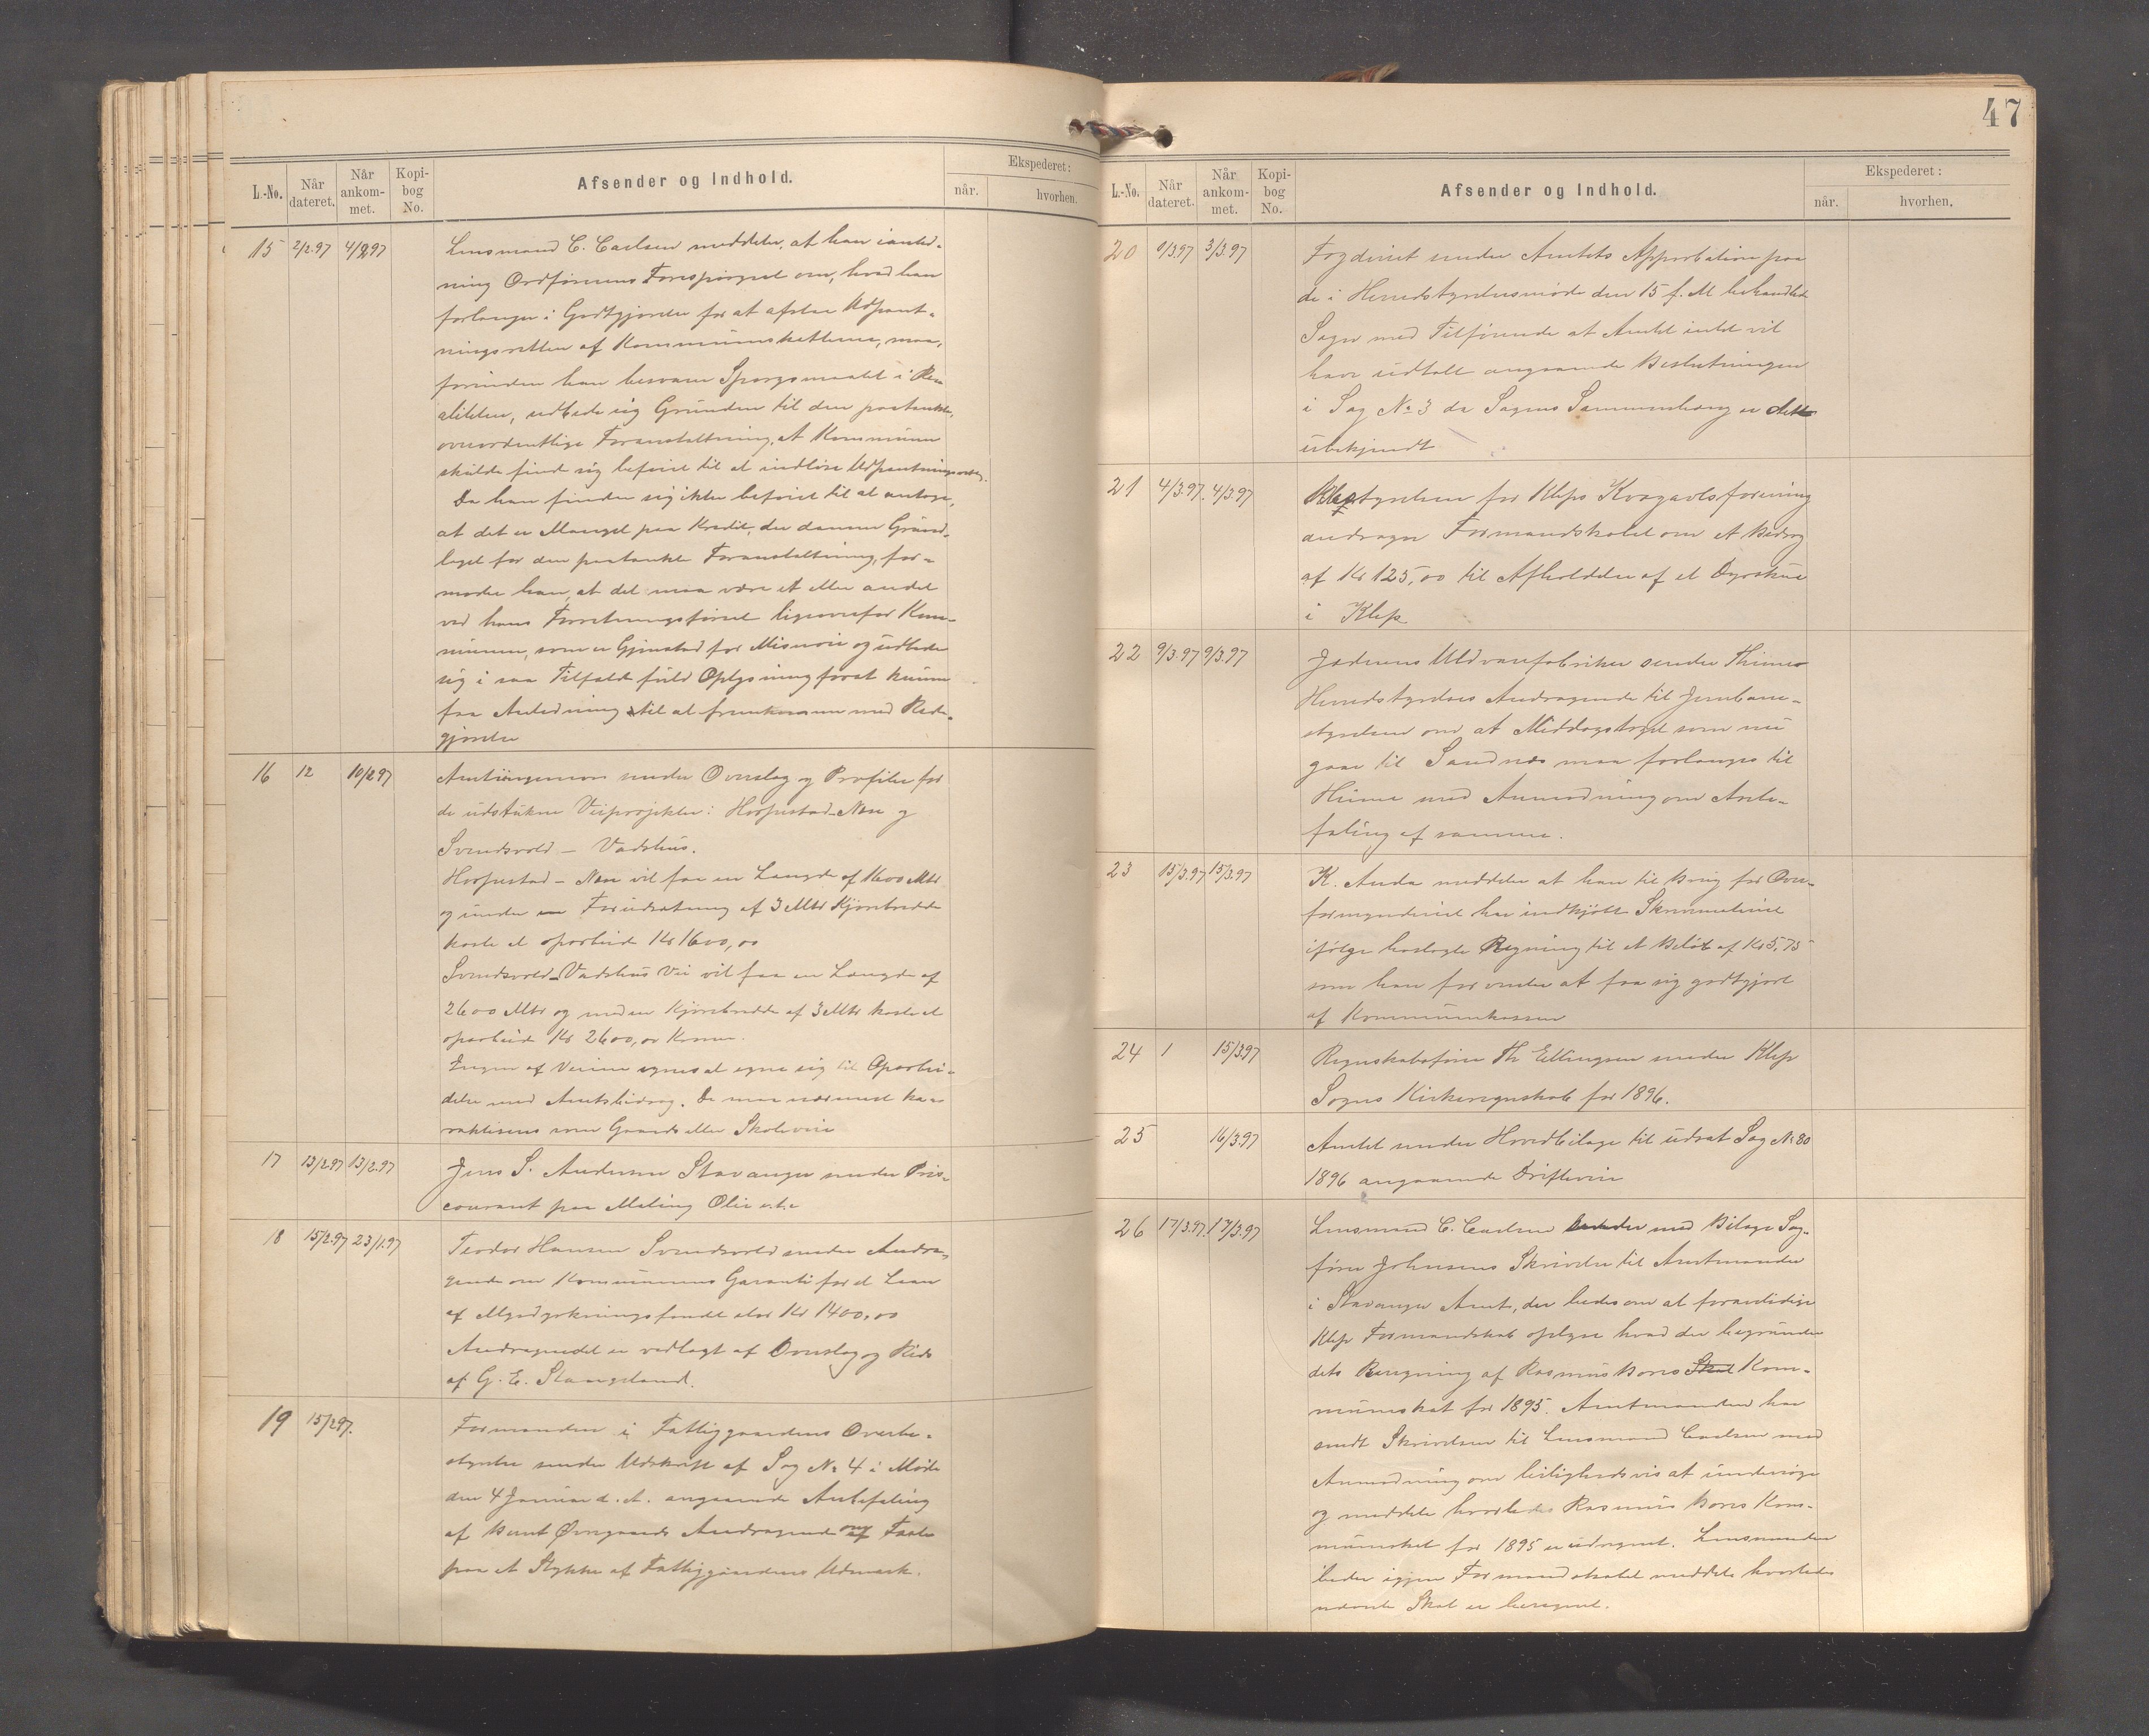 47
L.-No. Når dateret. Når ankom-met. Kopi-bog No. Afsender og Indhold. Ekspederet: når. hvorhen.
15 2/2.97 4/2.97 Lensmand C. Carlsen meddeler, at han i anled-
ning Ordførerens Forespørgsel om, hvad han
forlanger i Godtgjørelse for at afstaa Udpant-
ningsretten af Kommuneskatterne, maa,
forinden han besvarer Spørgsmaalet i Re-
aliteten, udbede sig Grunden til den paatænkte,
overordentlige Foranstaltning, at Kommunen
skulde finde sig beføiet til at indløse Udpantningsretten.
Da han finder sig ikke beføiet til at antage,
at det er Mangel paa Kredit, der danner Grund-
laget for den paatænkte Foranstaltning, for-
moder han, at det maa være et eller andet
ved hans Forretningsførsel ligeoverfor Kom-
munen, som er Gjenstand for Misnøie og udbeder
sig i saa Tilfælde fuld Oplysning forat kunne
faa Anledning til at fremkomme med Rede-
gjørelse
16 12 10/2.97 Amtsingeniøren sender Overslag og Profiler for
de udstukne Veiprosjekter: Horpestad-Nese og
Svendsvold - Vadshus.
Horpestad - Nese vil faa en Længde af 1600 Mtr
og under en Forudsætning af 3 Mtr Kjørebredde
koste at oparbeide Kr 1600,00
Svendsvold-Vadshus Vei vil faa en Længde af
2600 Mtr og med en Kjørebredde af 3 Mtr koste at
oparbeide Kr 2600,00 Kroner.
Ingen af Veiene synes at egne sig til Oparbei-
delse med Amtsbidrag. De maa nærmest ka-
raktiseres som Gaards eller Skoleveie
17 13/2.97 13/2.97 Jens S. Andersen Stavanger sender Pris-
courant paa Maling Olie etc
18 15/2.97 23/1.97 Teodor Hansen Svendsvold sender Andra-
gende om Kommunens Garanti for et Laan
af Myrdyrkningsfondet stor Kr 1400,00
Andragendet er vedlagt af Overslag og Rids
af G. E. Stangeland.
19 15/2.97. Formanden i Fattiggaardens Overbe-
styrelse sender Udskrift af Sag No 4 i Møde
den 4 Januar d. A. angaaende Anbefaling
af Bernt Øvregaards Andragende om Feste
paa et Stykke af Fattiggaardens Udmark.
L.-No. Når dateret. Når ankom-met. Kopi-bog No. Afsender og Indhold. Ekspederet: når. hvorhen.
20 1/3.97 3/3.97 Fogderiet sender Amtets Approbation paa
de i Herredstyrelsesmøde den 15 f. M behandlede
Sager med Tilføiende at Amtet intet vil
have udtalt angaaende Beslutningen
i Sag No 3 da Sagens Sammenhæng er dette
ubekjendt
21 4/3.97. 4/3.97 Bestyrelsen for Kleps Kvægavlsforening
andrager Formandskabet om et Bidrag
af Kr 125,00 til Afholdelse af et Dyrskue
i Klep
22 9/3.97 9/3.97 Jæderens Uldvarefabriker sender Thimes
Herredstyrelses Andragende til Jernbane-
styrelsen om at Middagstoget som nu
gaar til Sandnes maa forlænges til
Thime med Anmodning om Anbe-
faling af samme.
23 15/3.97 15/3.97 K. Anda meddeler at han til Brug for Over-
formynderiet har indkjøbt Skrivmateriel
ifølge hoslagte Regning til et Beløb af Kr 5,75
som han forventer at faa sig godtgjort
af Kommunekassen
24 1 15/3.97 Regnskabsfører Th Ellingsen sender Klep
Sogns Kirkeregnskab for 1896.
25 16/3.97 Amtet sender Hovedbilage til udsat Sag No 80
1896 angaaende Driftevei
26 17/3.97. 17/3.97 Lensmand C. Carlsen sender med Bilage Sag-
fører Johnsens Skrivelse til Amtmanden
i Stavanger Amt, der bedes om at foranledige
Klep Formandskab oplyse hvad der begrunder
dets Beregning af Rasmus Bores Skat Kom-
muneskat for 1895. Amtmanden har
sendt Skrivelsen til Lensmand Carlsen med
Anmodning om leilighedsvis at undersøge
og meddele hvorledes Rasmus Bores Kom-
muneskat for 1895 er udregnet. Lensmanden
beder igjen Formandskabet meddele hvorledes
nævnte Skat er beregnet.